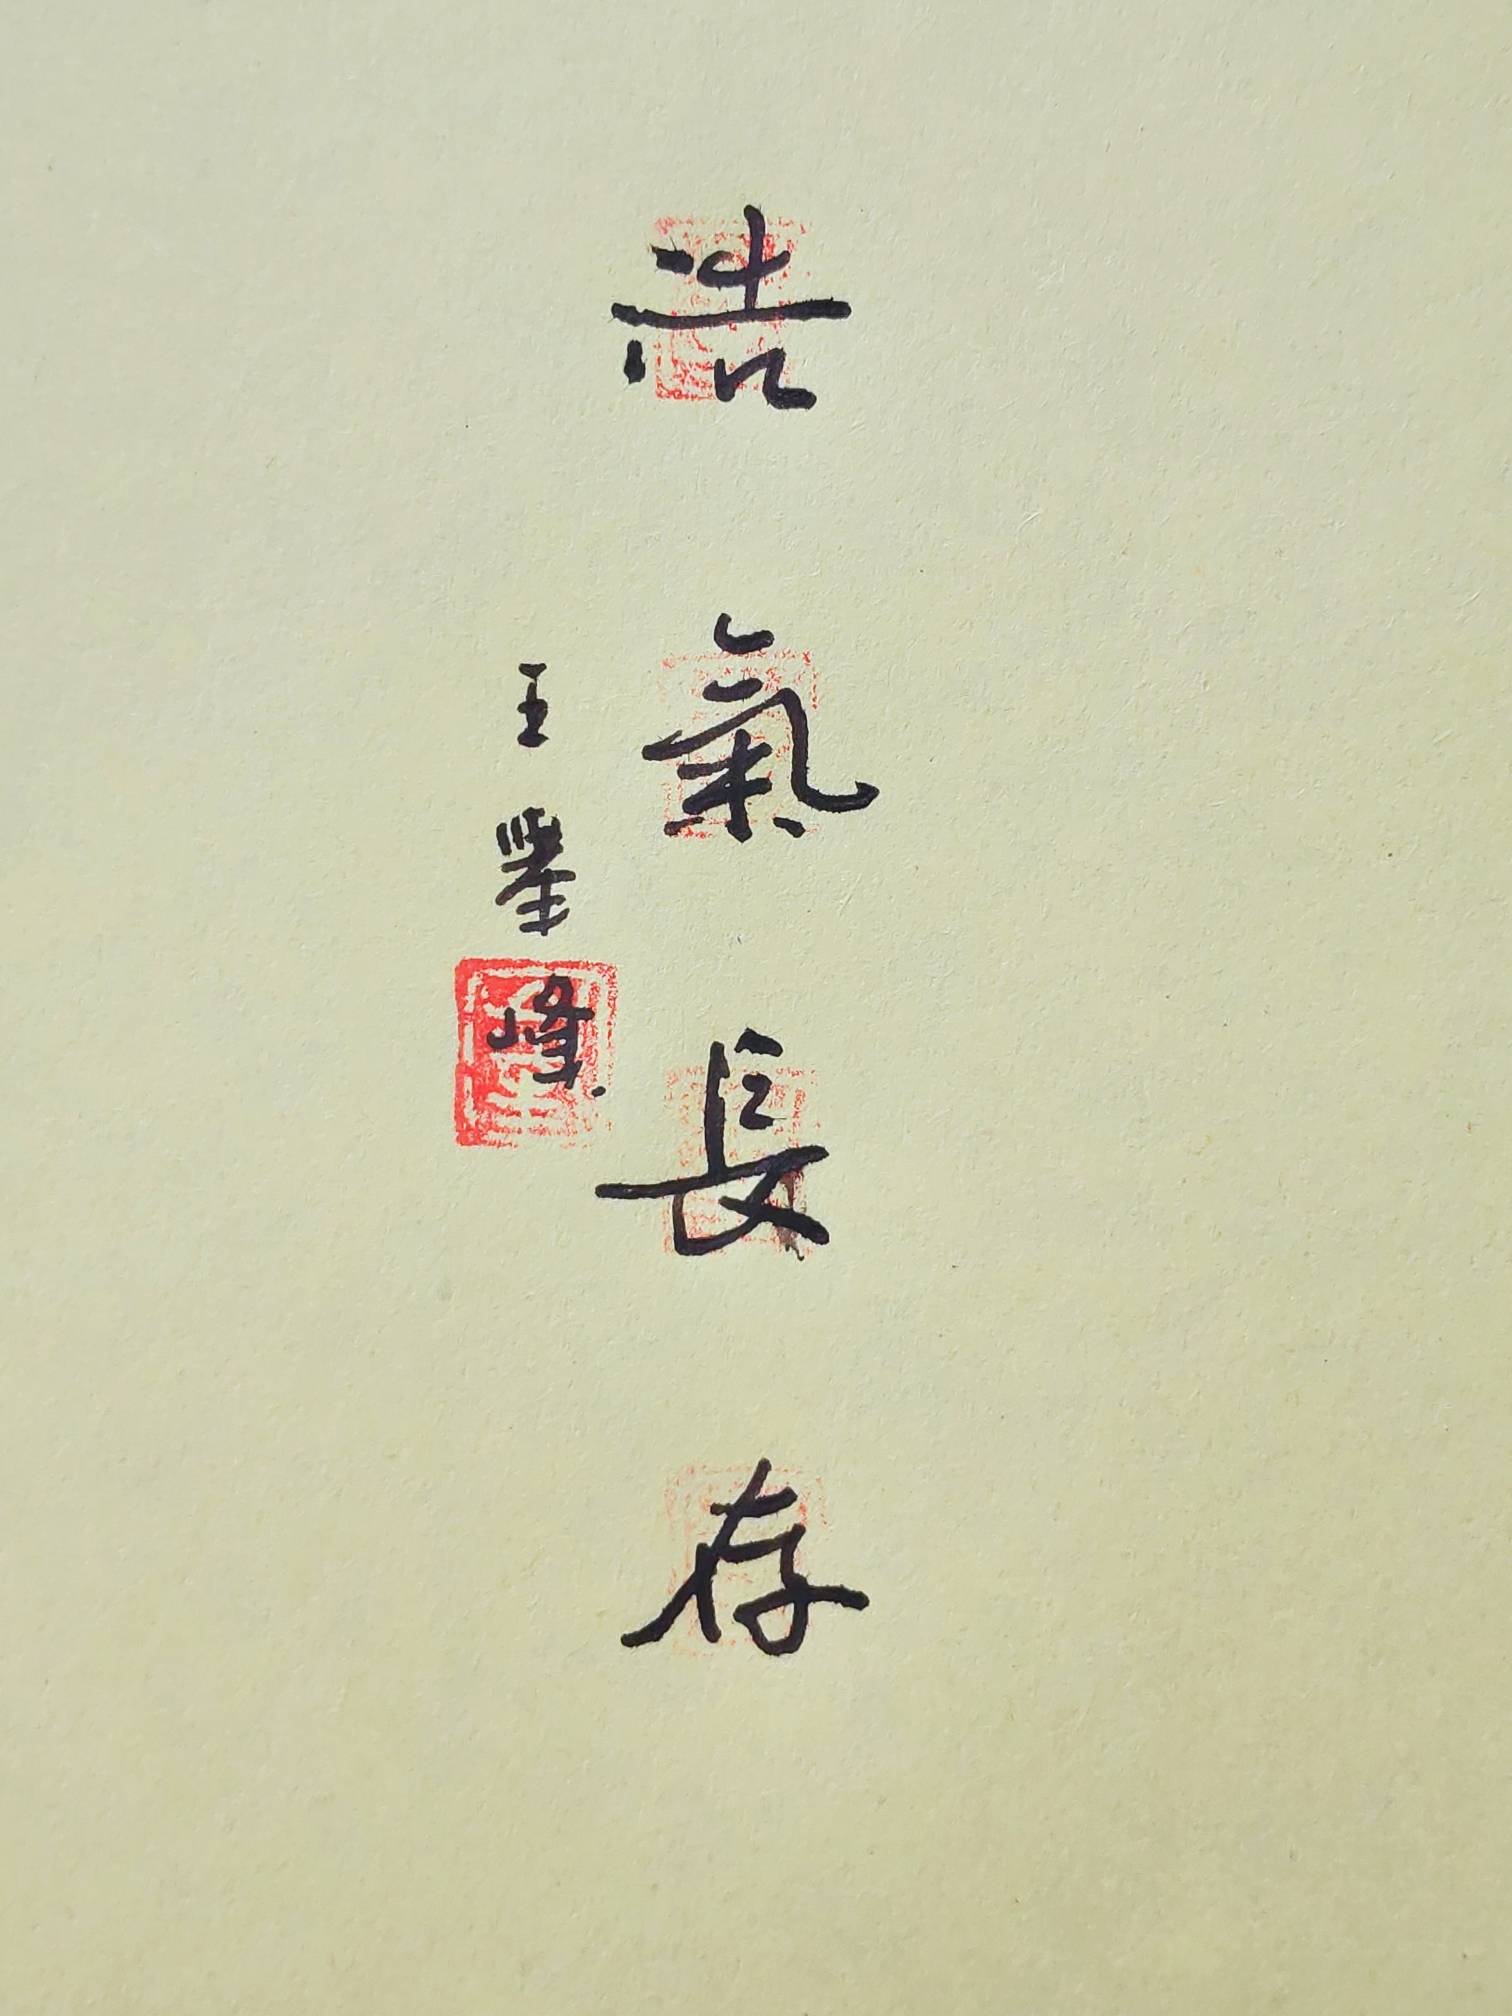 浩氣長存
王犖峰